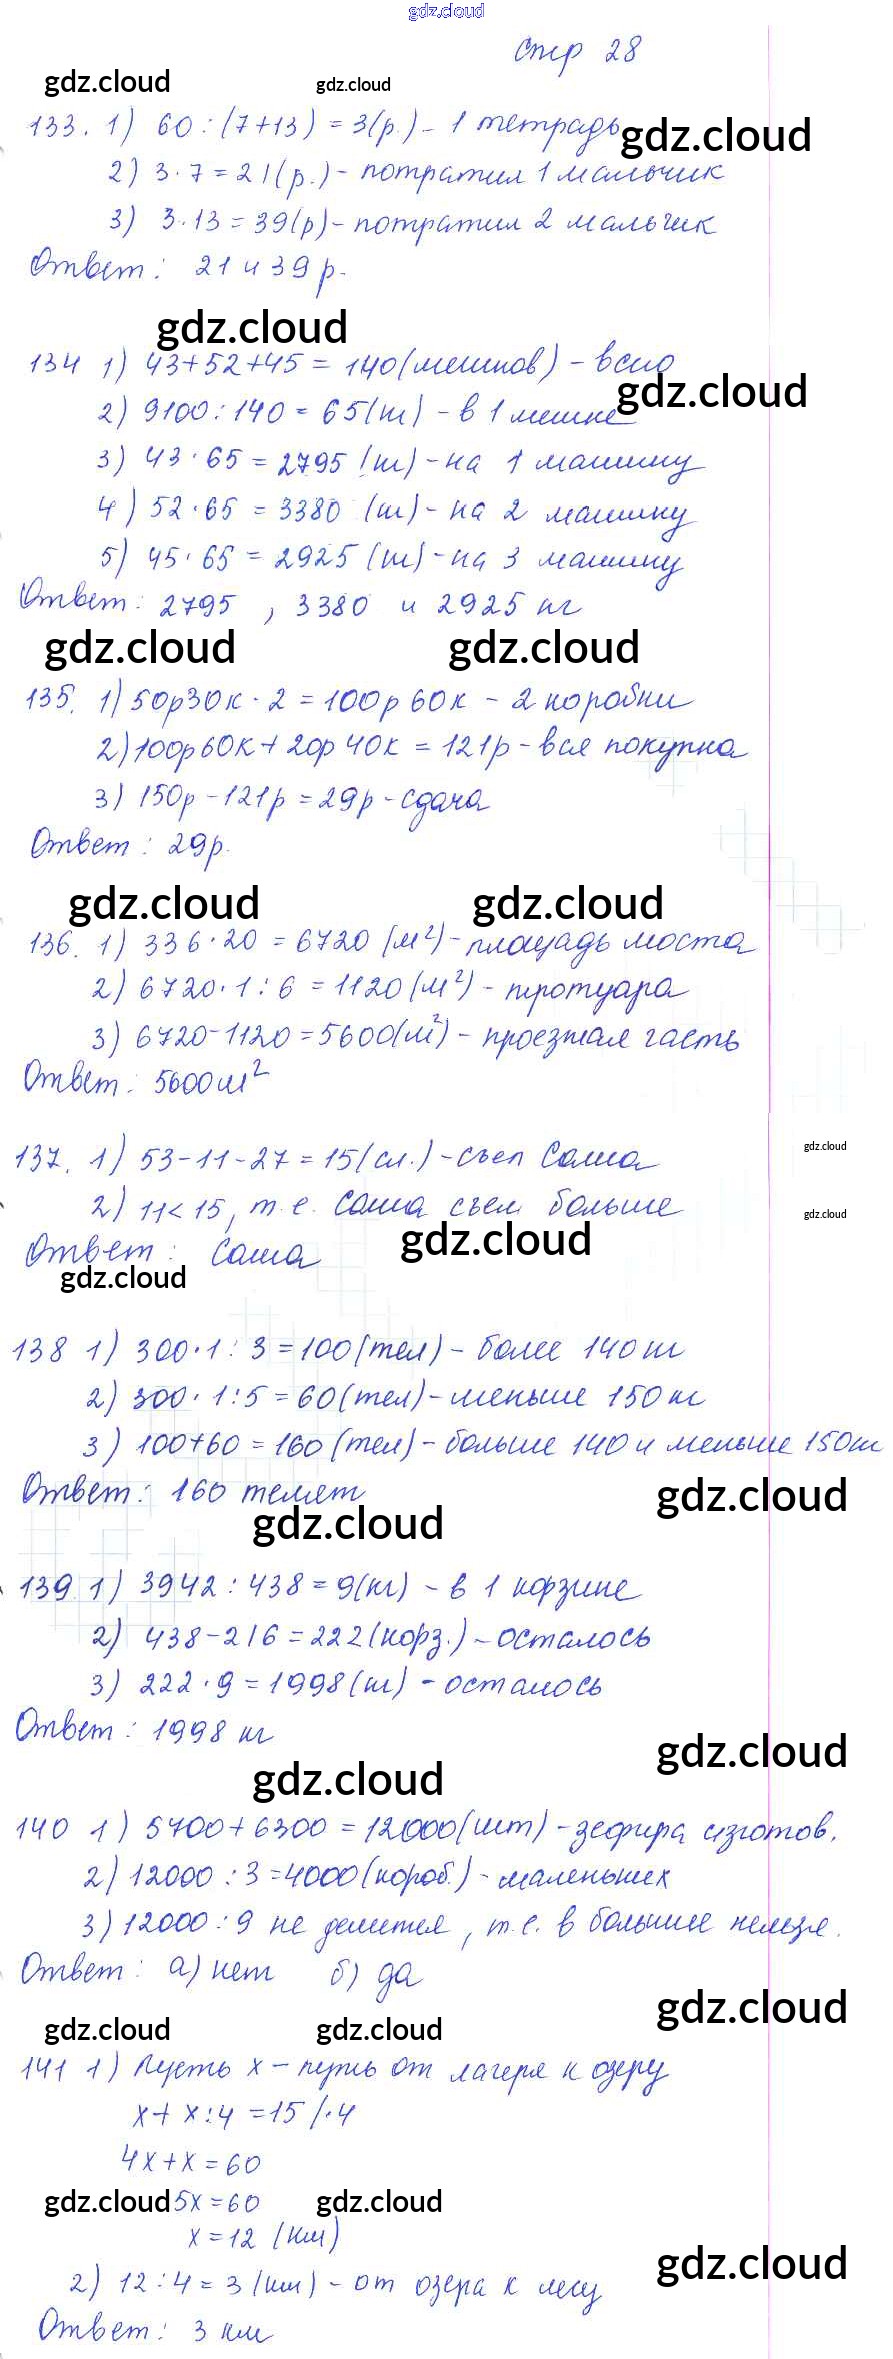 gdz.cloud
стр 28
gdz.cloud gdz.cloud
133. 1) 60 : (7+13) = 3(р.) - 1 тетрадь
gdz.cloud
2) 3·7 = 21(р.) - потратил 1 мальчик
3) 3·13 = 39(р) - потратил 2 мальчик
Ответ: 21 и 39 р.
gdz.cloud
134 1) 43+52+45 = 140(мешков) - всего
gdz.cloud
2) 9100 : 140 = 65(кг) - в 1 мешке
3) 43·65 = 2795 (кг) - на 1 машину
4) 52·65 = 3380 (кг) - на 2 машину
5) 45·65 = 2925 (кг) - на 3 машину
Ответ: 2795, 3380 и 2925 кг
gdz.cloud gdz.cloud
135. 1) 50р30к·2 = 100р 60к - 2 коробки
2) 100р60к + 20р 40к = 121р - вся покупка
3) 150р - 121р = 29р - сдача
Ответ: 29р.
gdz.cloud gdz.cloud
136. 1) 336·20 = 6720 (м²) - площадь моста
2) 6720·1 : 6 = 1120 (м²) - тротуара
3) 6720 - 1120 = 5600(м²) - проезжая часть
Ответ: 5600 м²
gdz.cloud
137. 1) 53-11-27 = 15(сл.) - съел Саша
2) 11<15, т.е. Саша съел больше
gdz.cloud
gdz.cloud
Ответ: Саша
gdz.cloud
138 1) 300·1 : 3 = 100(тел) - более 140 кг
2) 300·1:5 = 60(тел) - меньше 150 кг
3) 100+60 = 160 (тел) - больше 140 и меньше 150кг
Ответ: 160 телят
gdz.cloud
gdz.cloud
139 1) 3942 : 438 = 9(кг) - в 1 корзине
2) 438-216 = 222(корз.) - осталось
3) 222·9 = 1998(кг) - осталось
Ответ: 1998 кг
gdz.cloud
gdz.cloud
140 1) 5700+6300 = 12000(шт) - зефира изготов.
2) 12000 : 3 = 4000(короб.) - маленьких
3) 12000 : 9 не делится, т.е. в большие нельзя.
Ответ: а) нет б) да
gdz.cloud
gdz.cloud gdz.cloud
141 1) Пусть х - путь от лагеря к озеру
х + х:4 = 15 /·4
4х+х = 60
gdz.cloud 5х = 60 gdz.cloud
х = 12 (км)
gdz.cloud
2) 12 : 4 = 3 (км) - от озера к лесу
Ответ: 3 км